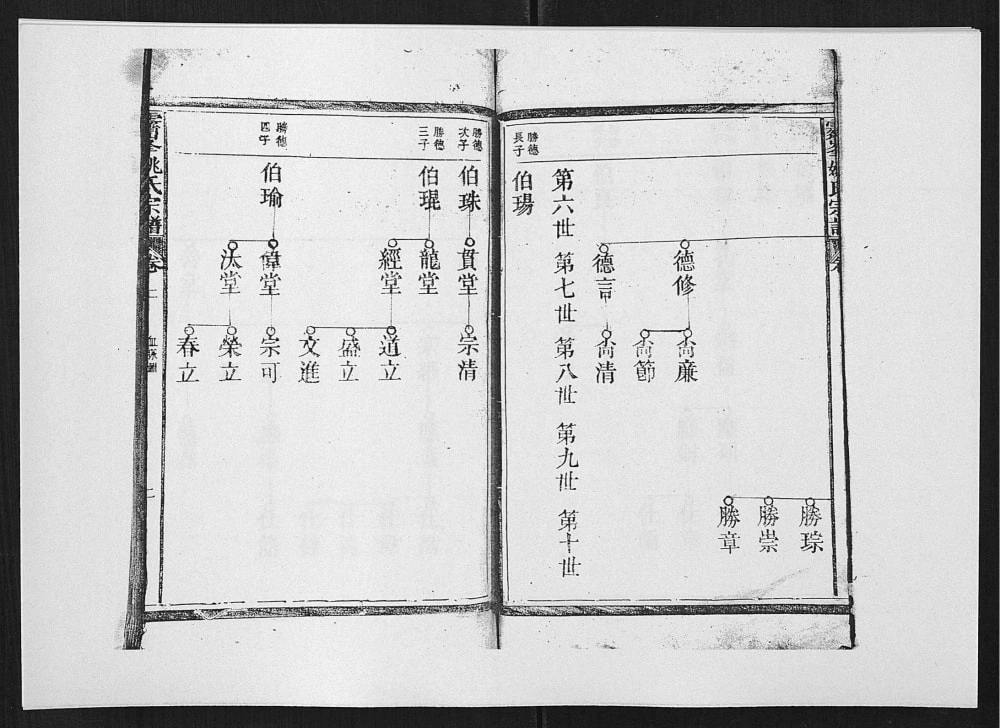 勝琮
勝崇
勝章
德修
尚廉
尚節
德言
尚清
第六世 第七世 第八世 第九世 第十世
勝德長子
伯瑒
勝德次子
伯珠
貫堂
宗清
勝德三子
伯琨
龍堂
經堂
道立
盛立
文進
勝德四子
伯瑜
偉堂
宗可
汰堂
榮立
春立
姚氏宗譜
卷